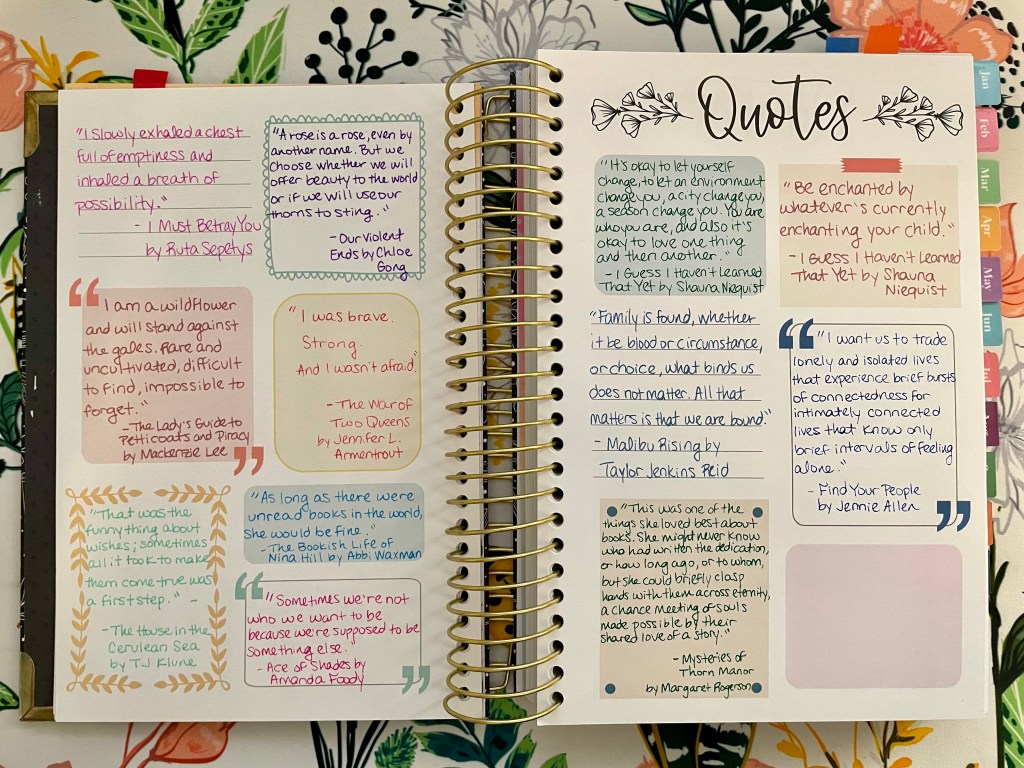 "I slowly exhaled a chest
full of emptiness and
inhaled a breath of
possibility."
- I Must Betray You
by Ruta Sepetys
"A rose is a rose, even by
another name. But we
choose whether we will
offer beauty to the world
or if we will use our
thorns to sting."
- Our Violent
Ends by Chloe
Gong
"I am a wildflower
and will stand against
the gales. Rare and
uncultivated, difficult
to find, impossible to
forget."
- The Lady's Guide to
Petticoats and Piracy
by Mackenzie Lee
"I was brave.
Strong.
And I wasn't afraid."
- The War of
Two Queens
by Jennifer L.
Armentrout
"That was the
funny thing about
wishes; sometimes
all it took to make
them come true was
a first step." -
- The House in the
Cerulean Sea
by TJ Klune
"As long as there were
unread books in the world,
she would be fine."
- The Bookish Life of
Nina Hill by Abbi Waxman
"Sometimes we're not
who we want to be
because we're supposed to be
something else."
- Ace of Shades by
Amanda Foody
Quotes
"It's okay to let yourself
change, to let an environment
change you, a city change you,
a season change you. You are
who you are, and also it's
okay to love one thing
and then another."
- I Guess I Haven't Learned
That Yet by Shauna Niequist
"Be enchanted by
whatever's currently
enchanting your child."
- I Guess I Haven't Learned
That Yet by Shauna
Niequist
"Family is found, whether
it be blood or circumstance,
or choice, what binds us
does not matter. All that
matters is that we are bound."
- Malibu Rising by
Taylor Jenkins Reid
"I want us to trade
lonely and isolated lives
that experience brief bursts
of connectedness for
intimately connected
lives that know only
brief intervals of feeling
alone."
- Find Your People
by Jennie Allen
"This was one of the
things she loved best about
books. She might never know
who had written the dedication,
or how long ago, or to whom,
but she could briefly clasp
hands with them across eternity,
a chance meeting of souls
made possible by their
shared love of a story."
- Mysteries of
Thorn Manor
by Margaret Rogerson
Jan
Feb
Mar
Apr
May
Jun
Jul